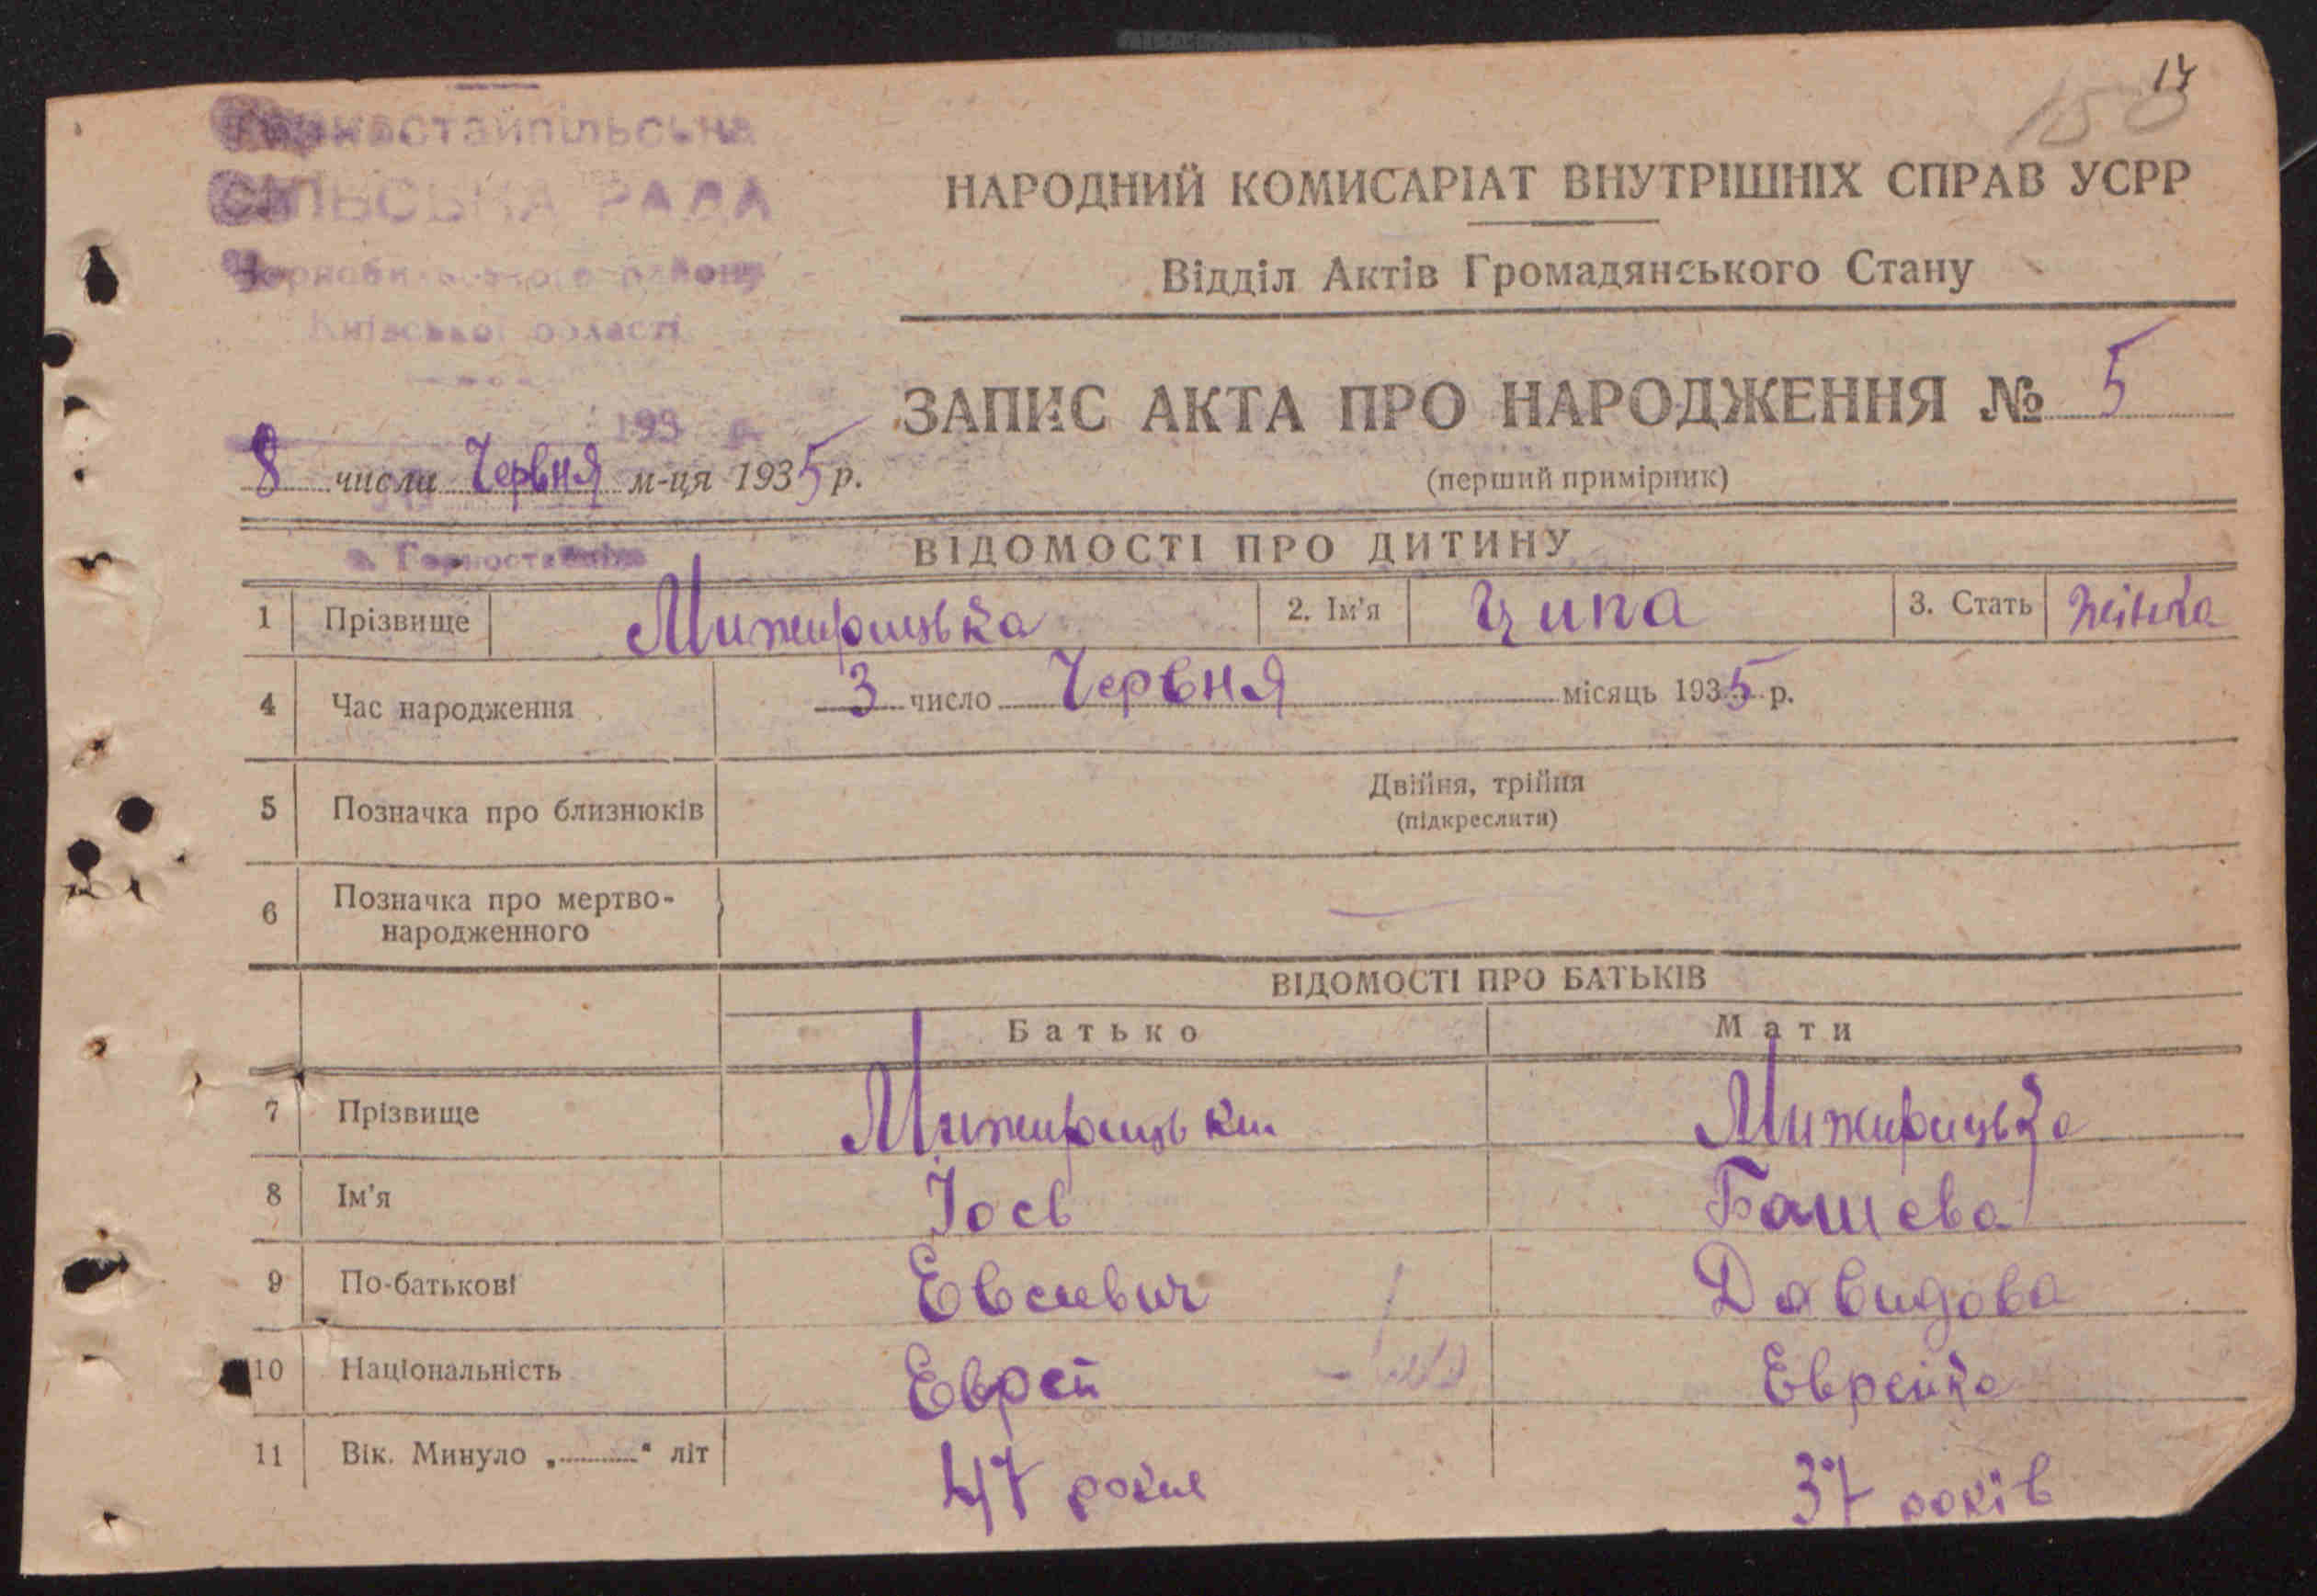 17
150
Горностайпільська
СІЛЬСЬКА РАДА
Чорнобильського району
Київської області
193 р.
НАРОДНИЙ КОМИСАРІАТ ВНУТРІШНІХ СПРАВ УСРР
Відділ Актів Громадянського Стану
ЗАПИС АКТА ПРО НАРОДЖЕННЯ № 5
8 числа Червня м-ця 1935 р.
(перший примірник)
ВІДОМОСТІ ПРО ДИТИНУ
1 Прізвище Мижирицька 2. Ім'я Ципа 3. Стать жінка
4 Час народження 3 число Червня місяць 1935 р.
5 Позначка про близнюків Двійня, трійня
(підкреслити)
6 Позначка про мертво-
народженного
ВІДОМОСТІ ПРО БАТЬКІВ
Батько Мати
7 Прізвище Мижирицьки Мижирицька
8 Ім'я Йосв Башева
9 По-батькові Евсиевич Давидова
10 Національність Еврей Еврейка
11 Вік. Минуло „..........“ літ 47 роки 37 років